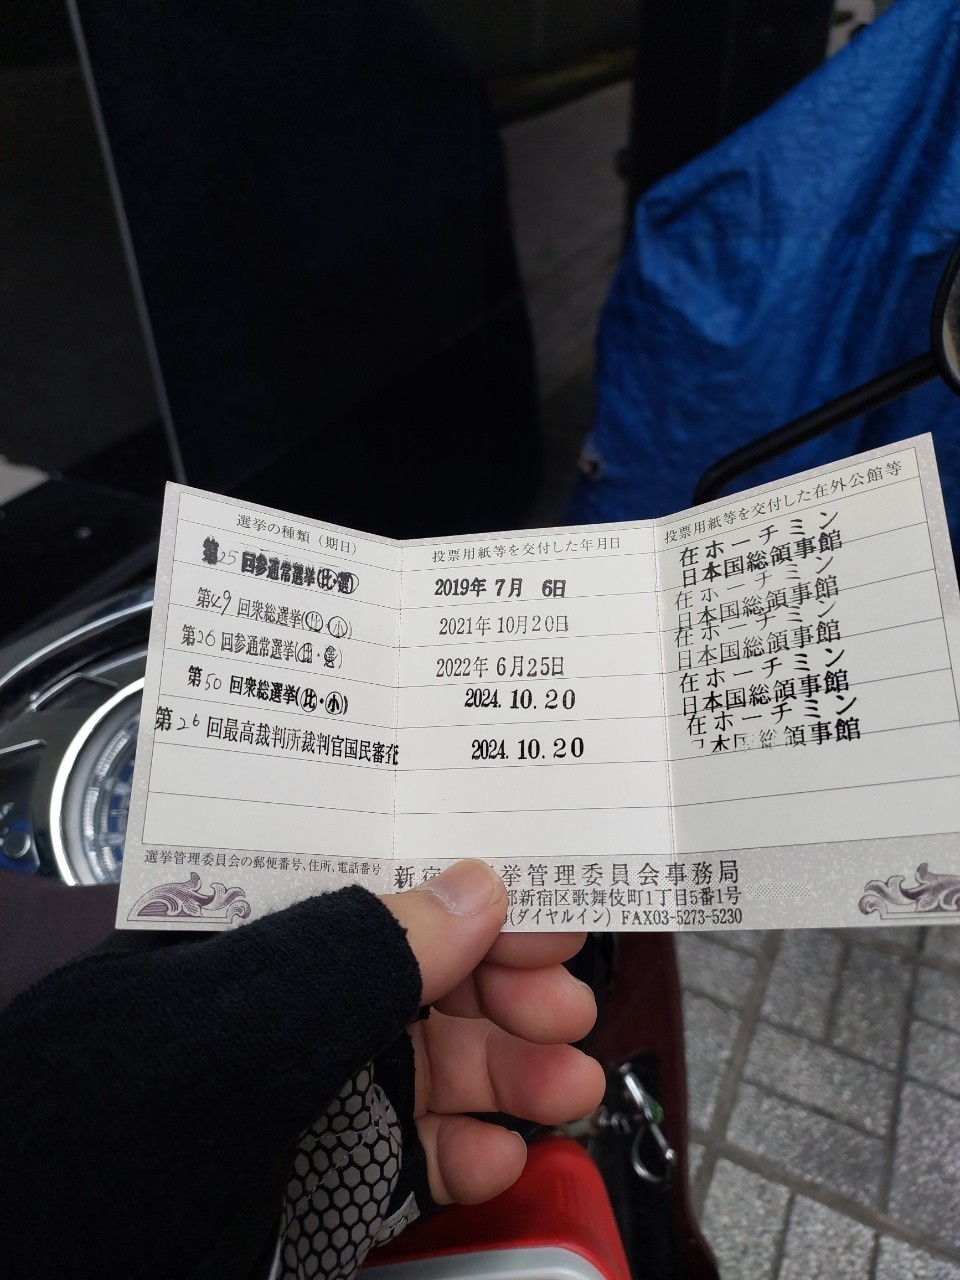 選挙の種類（期日） 投票用紙等を交付した年月日 投票用紙等を交付した在外公館等
第25回参通常選挙(比・選) 2019年 7月 6日 在ホーチミン日本国総領事館
第49回衆総選挙(比・小) 2021年10月20日 在ホーチミン日本国総領事館
第26回参通常選挙(比・選) 2022年 6月25日 在ホーチミン日本国総領事館
第50回衆総選挙(比・小) 2024.10.20 在ホーチミン日本国総領事館
第26回最高裁判所裁判官国民審査 2024.10.20 在ホーチミン日本国総領事館
選挙管理委員会の郵便番号、住所、電話番号
新宿 挙管理委員会事務局
都新宿区歌舞伎町1丁目5番1号
(ダイヤルイン) FAX03-5273-5230